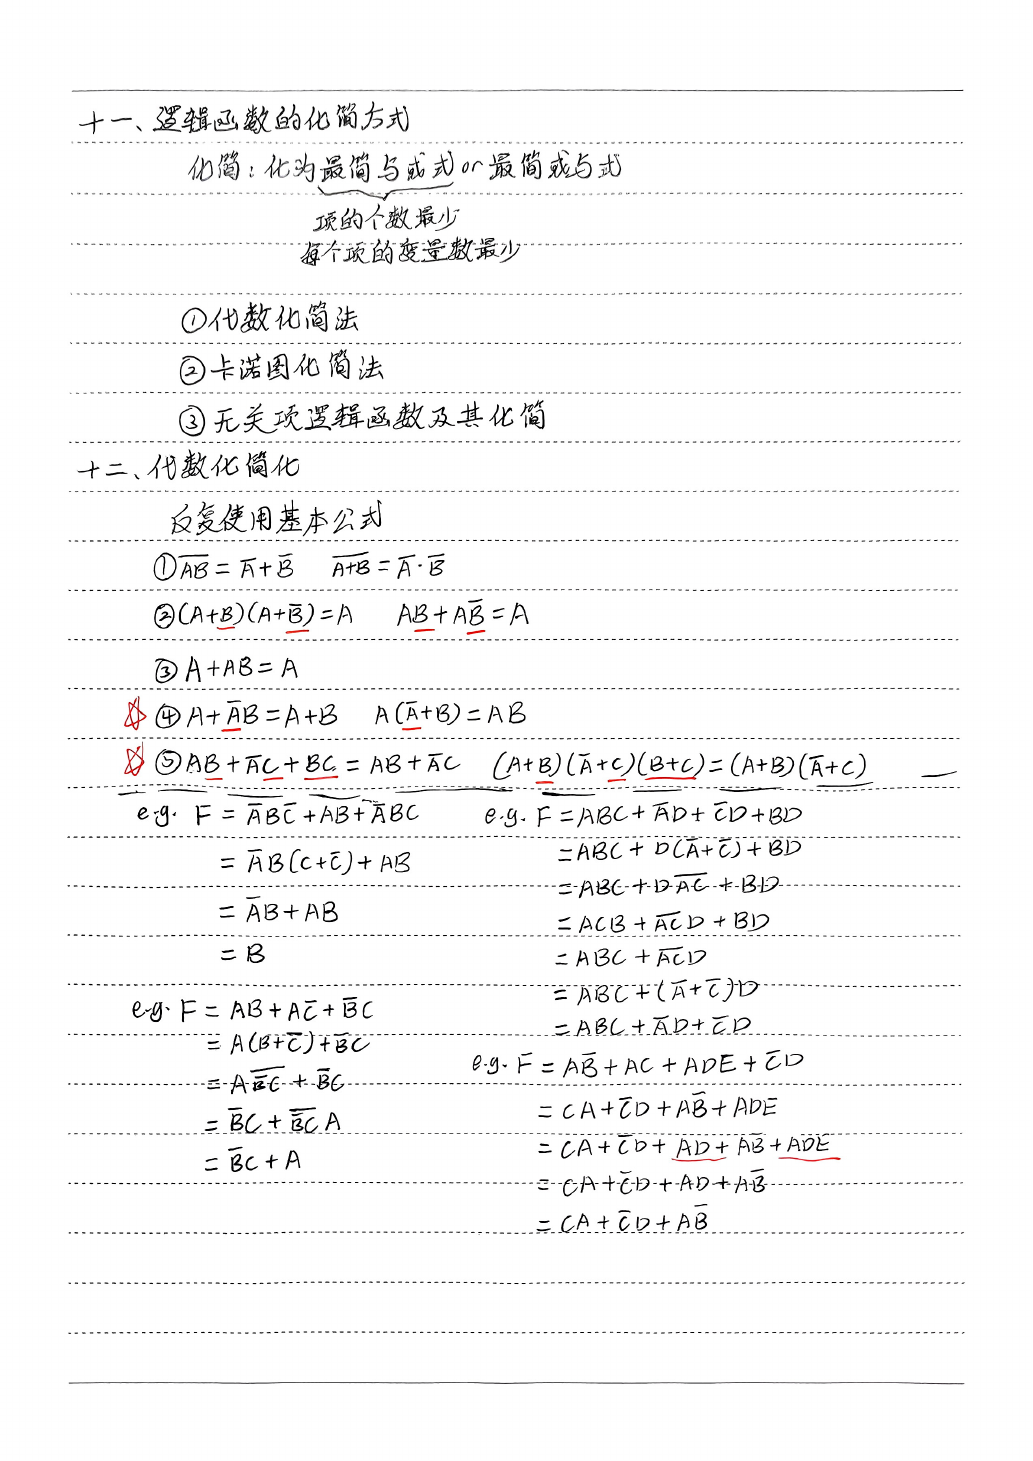 十一、逻辑函数的化简方式
化简：化为最简与或式 or 最简或与式
项的个数最少
每个项的变量数最少
①代数化简法
②卡诺图化简法
③无关项逻辑函数及其化简
十二、代数化简化
反复使用基本公式
①A̅B̅ = A̅+B̅ A̅+̅B̅ = A̅·B̅
②(A+B)(A+B̅)=A AB+AB̅=A
③A+AB=A
④A+A̅B=A+B A(A̅+B)=AB
⑤AB+A̅C+BC=AB+A̅C (A+B)(A̅+C)(B+C)=(A+B)(A̅+C)
e.g. F = A̅BC̅+AB+A̅BC
= A̅B(C+C̅)+AB
= A̅B+AB
= B
e.g. F = AB+AC̅+B̅C
= A(B+C̅)+B̅C
= A B̅̅C̅ + B̅C
= B̅C + B̅̅C̅ A
= B̅C+A
e.g. F = ABC+A̅D+C̅D+BD
= ABC+D(A̅+C̅)+BD
= ABC+D A̅C̅ +BD
= ACB + A̅C̅ D + BD
= ABC + A̅C̅ D
= ABC+(A̅+C̅)D
= ABC+A̅D+C̅D
e.g. F = AB̅+AC+ADE+C̅D
= CA+C̅D+AB̅+ADE
= CA+C̅D+AD+AB̅+ADE
= CA+C̅D+AD+AB̅
= CA+C̅D+AB̅